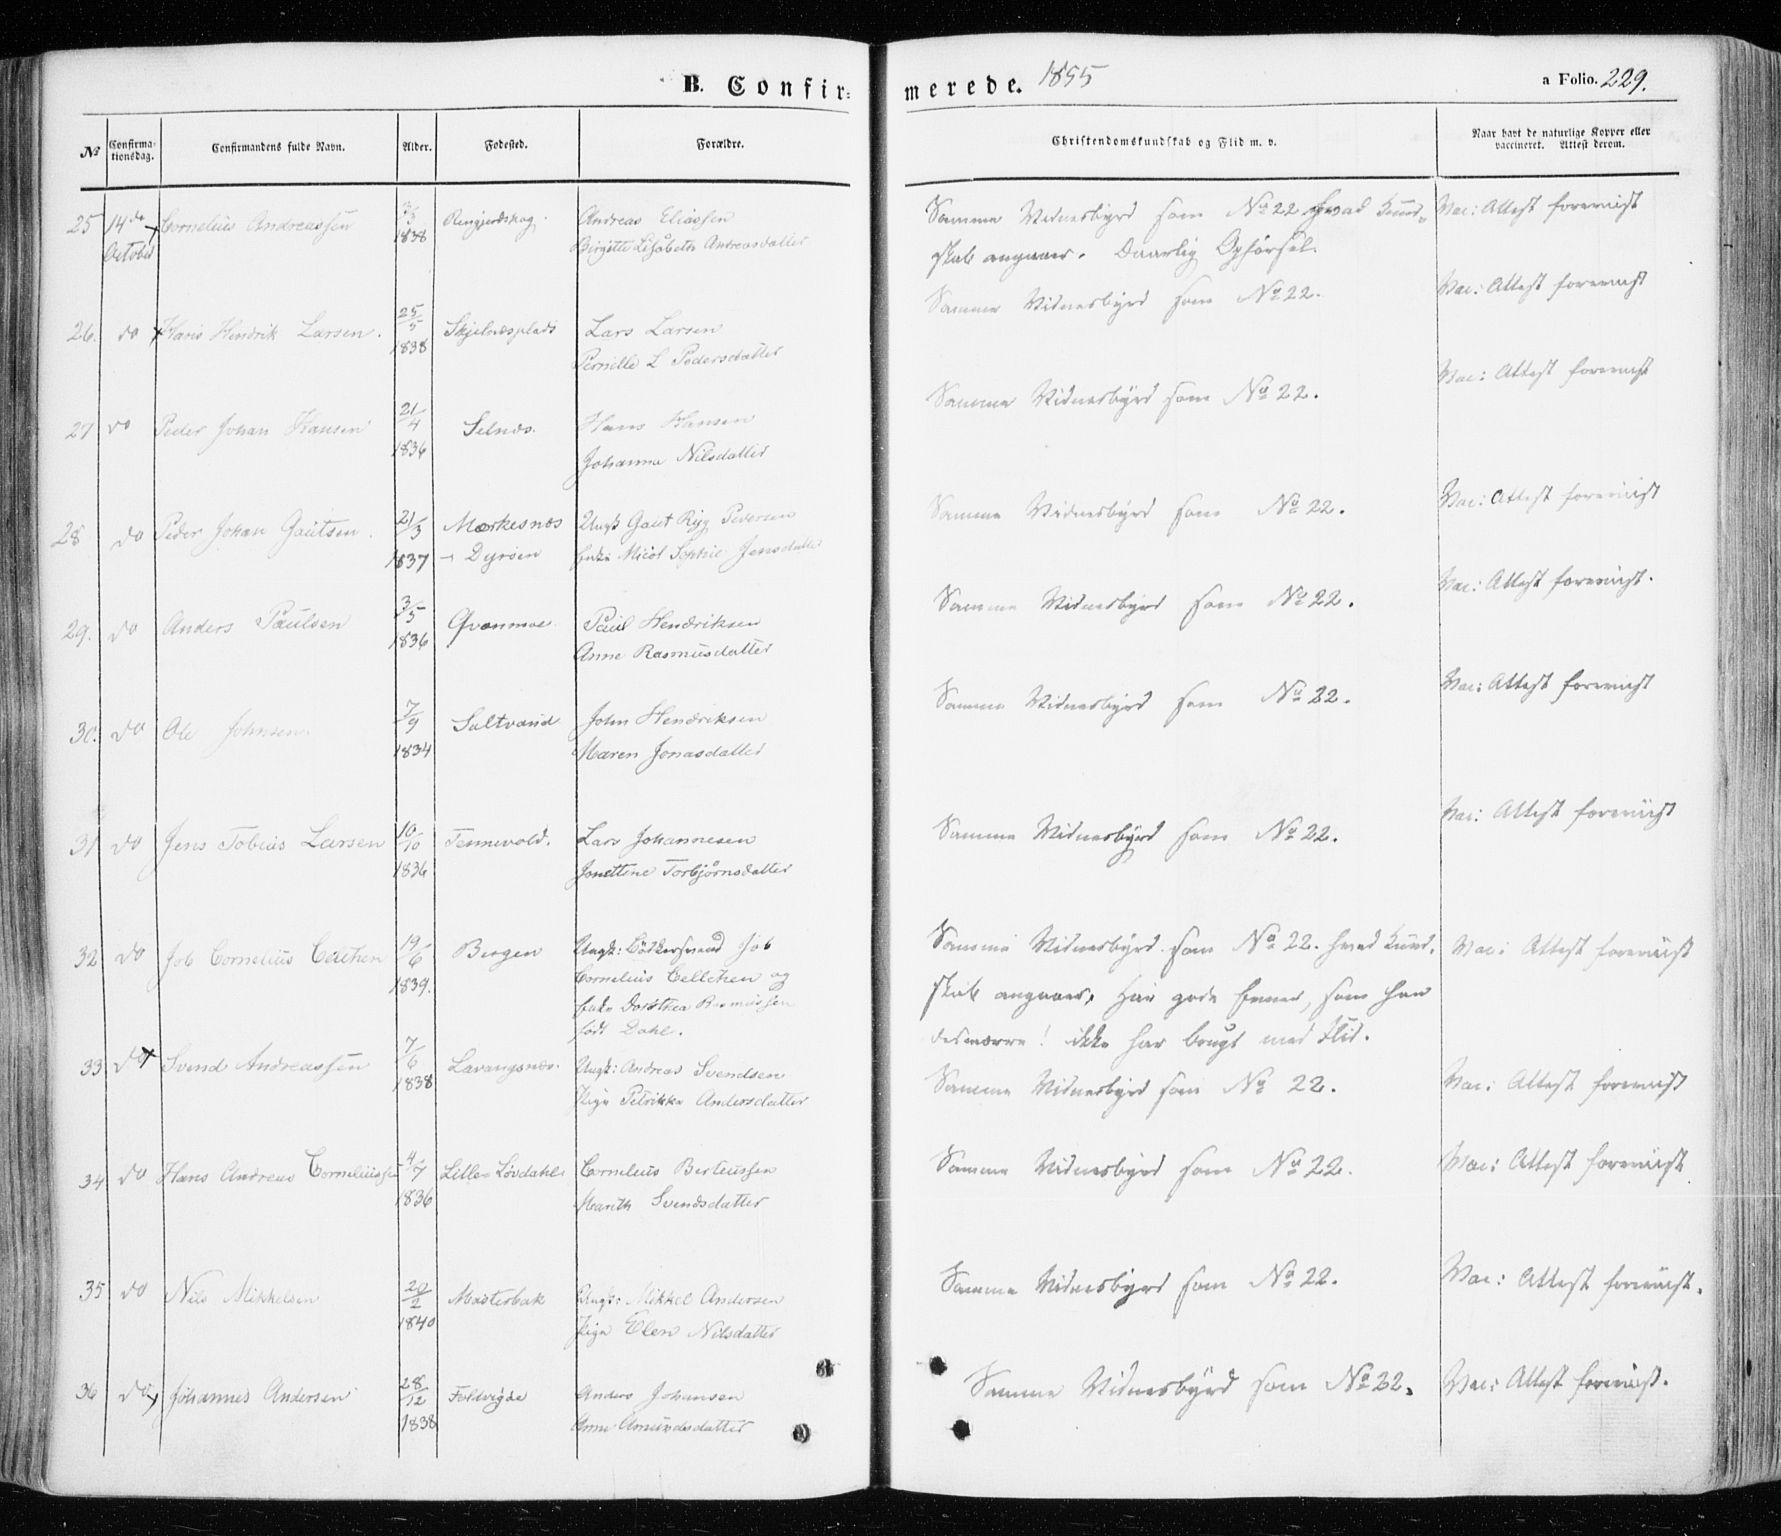 B. Confirmerede. 1855
a Folio. 229.
No Confirmationsdag. Confirmandens fulde Navn. Alder. Fødested. Forældre. Christendomskundskab og Flid m. v. Naar havt de naturlige Kopper eller vaccineret. Attest derom.
25 14de October Cornelius Andreassen 1838 Andreas Eliassen
Birgitte Lisabeth Andreasdatter
Samme Vidnesbyrd som No 22 hvad Kund-
skab angaaer. Daarlig Opførsel.
Vac: Attest foreviist
26. do Hans Hendrik Larsen. 25/5 1838 Skjelnæsplads Lars Larsen
Pernille L Pedersdatter
Samme Vidnesbyrd som No 22.
Vac: Attest foreviist
27 do Peder Johan Hansen 21/4 1836 Selnæs. Hans Hansen
Johanna Nilsdatter
Samme Vidnesbyrd som No 22.
Vac: Attest foreviist
28 do Peder Johan Gautsen. 21/3 1837 Mærkesnæs
- Dyrøen
Ungk Gaut Ryg Pedersen
Enke Micol Sophie Jensdatter
Samme Vidnesbyrd som No 22.
Vac: Attest foreviist
29. do Anders Paulsen 3/5 1836 Qvanmoe Paul Hendriksen
Anne Rasmusdatter
Samme Vidnesbyrd som No 22.
Vac: Attest foreviist.
30. do Ole Johnsen. 7/9 1834 Saltvand John Hendriksen
Maren Jonasdatter
Samme Vidnesbyrd som No 22.
Vac: Attest foreviist
31 do Jens Tobias Larsen 10/10 1836 Tennevold. Lars Johannesen
Jonettine Torbjørnsdatter
Samme Vidnesbyrd som No 22.
Vac: Attest foreviist
32 do Job Cornelius 19/6 1839. Bergen Ungk: Bødkersvend Job
Cornelius og
Enke Dorothea Rasmussen
født Dahl.
Samme Vidnesbyrd som No 22. hvad Kund-
skab angaaer. Har gode Evner, som han
desværre! ikke har brugt med Flid.
Vac: Attest foreviist
33 do Svend Andreassen 7/6 1838 Lavangsnæs. Ungk: Andreas Svendsen
Pige Petrikke Andersdatter
Samme Vidnesbyrd som No 22.
Vac: Attest foreviist
34 do Hans Andreas Corneliussen 4/7 1836 Lille Løvdahl Cornelius Berteussen
Marith Svendsdatter
Samme Vidnesbyrd som No 22.
Vac: Attest foreviist
35 do Nils Mikkelsen 29/2 1840 Mæsterbak Ungk: Mikkel Andersen
Pige Elen Nilsdatter
Samme Vidnesbyrd som No 22.
Vac: Attest foreviist.
36 do Johannes Andersen 28/12 1838 Anders Johansen
Anne Amundsdatter
Samme Vidnesbyrd som No 22.
Vac: Attest foreviist.